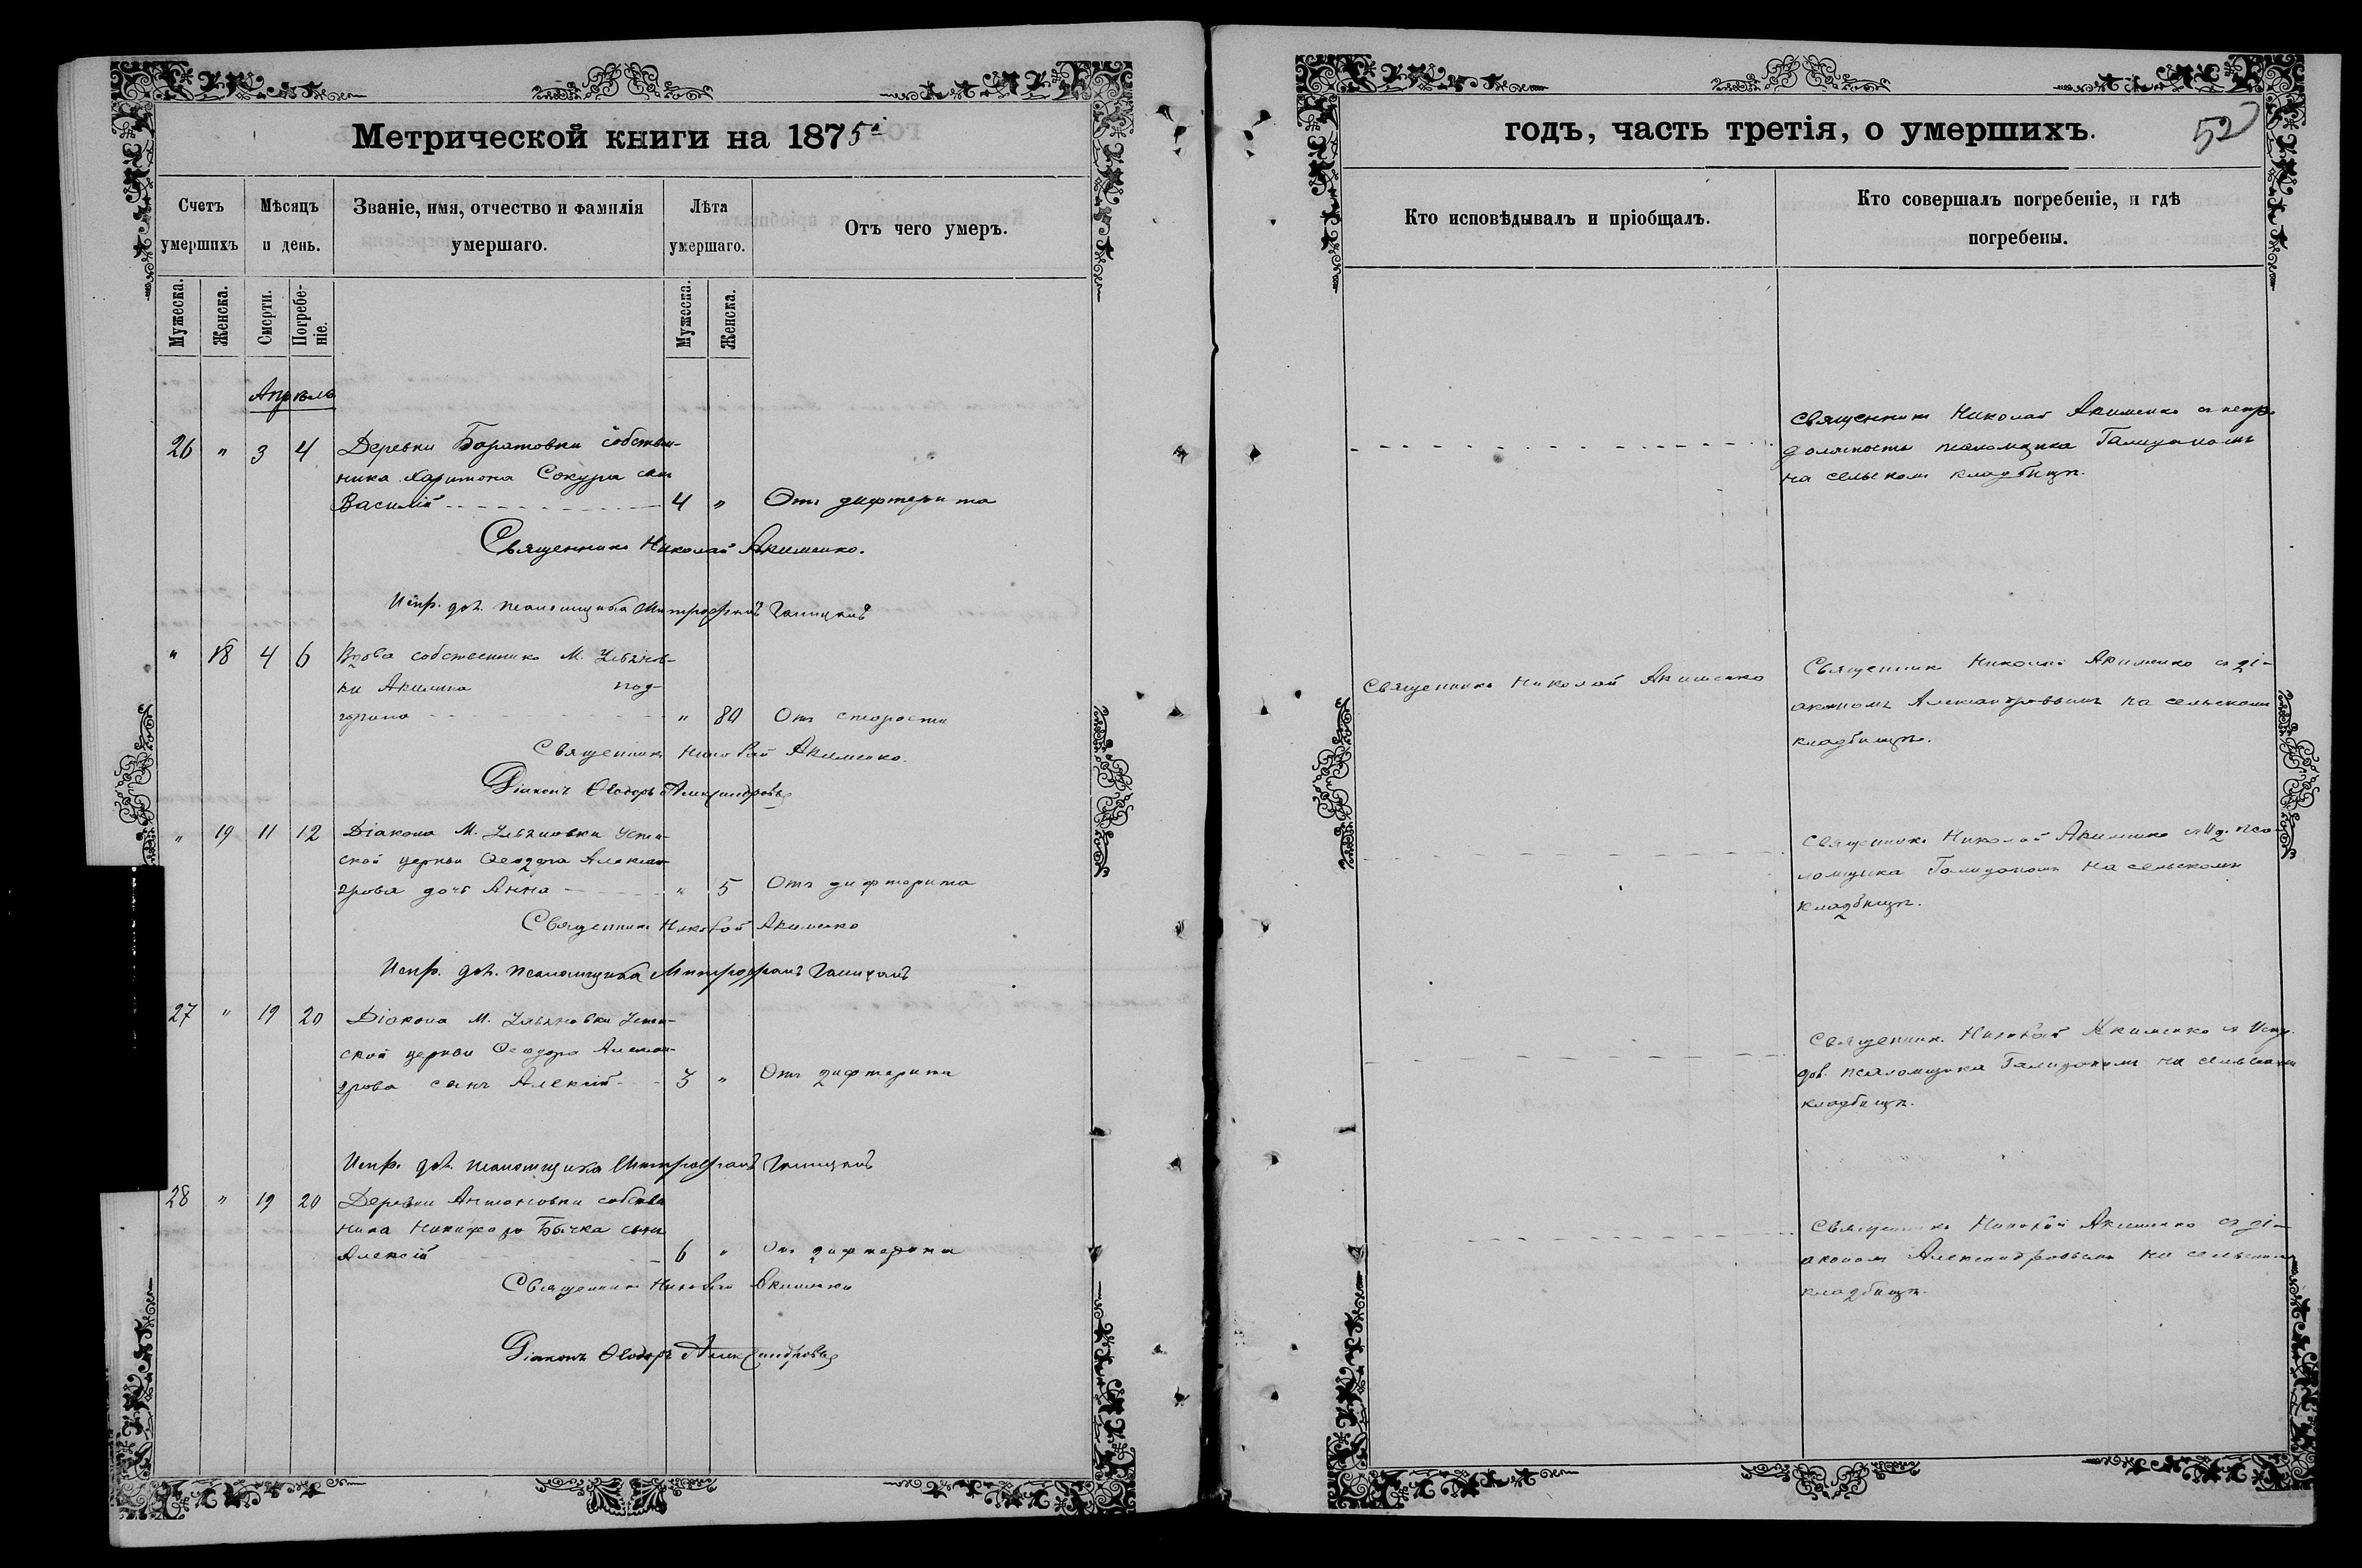 Метрической книги на 1875й
Счетъ умершихъ
Мѣсяцъ и день.
Званіе, имя, отчество и фамилія умершаго.
Лѣта умершаго.
Отъ чего умеръ.
Мужеска.
Женска.
Смерти.
Погребе-
ніе.
Мужеска.
Женска.
Апрѣль
26 " 3 4 Деревни собствен-
ника Харитона Сокура сынъ
Василій 4 " Отъ дифтерита
Священникъ Николай Акименко.
Испр. дол. псаломщика Митрофанъ
" 18 4 6 Вдова собственника М. Ульянов-
ки Акилина Под-
" 80 Отъ старости
Священникъ Николай Акименко.
Діаконъ Ѳеодоръ Александровъ
" 19 11 12 Діакона М. Ульяновки Успен-
ской церкви Ѳеодора Алексан-
дрова дочь Анна " 5 Отъ дифтерита
Священникъ Николай Акименко
Испр. дол. псаломщика Митрофанъ
27 " 19 20 Діакона М. Ульяновки Успен-
ской церкви Ѳеодора Алексан-
дрова сынъ Алексій 3 " Отъ дифтерита
Испр. дол. псаломщика Митрофанъ
28 " 19 20 Деревни Антоновки собствен
ника Никифора Бычка сынъ
Алексій 6 " Отъ дифтерита
Священникъ Николай Акименко
Діаконъ Ѳеодоръ Александровъ
годъ, часть третія, о умершихъ.
52
Кто исповѣдывалъ и пріобщалъ.
Кто совершалъ погребеніе, и гдѣ
погребены.
Священникъ Николай Акименко съ испр.
должность псаломщика
на сельскомъ кладбищѣ.
Священникъ Николай Акименко
Священникъ Николай Акименко съ ді-
акономъ Александровымъ на сельскомъ
кладбищѣ.
Священникъ Николай Акименко съ И.д. пса-
ломщика на сельскомъ
кладбищѣ.
Священникъ Николай Акименко съ Испр.
дол. псаломщика на сельскомъ
кладбищѣ.
Священникъ Николай Акименко съ ді-
акономъ Александровымъ на сельскомъ
кладбищѣ.